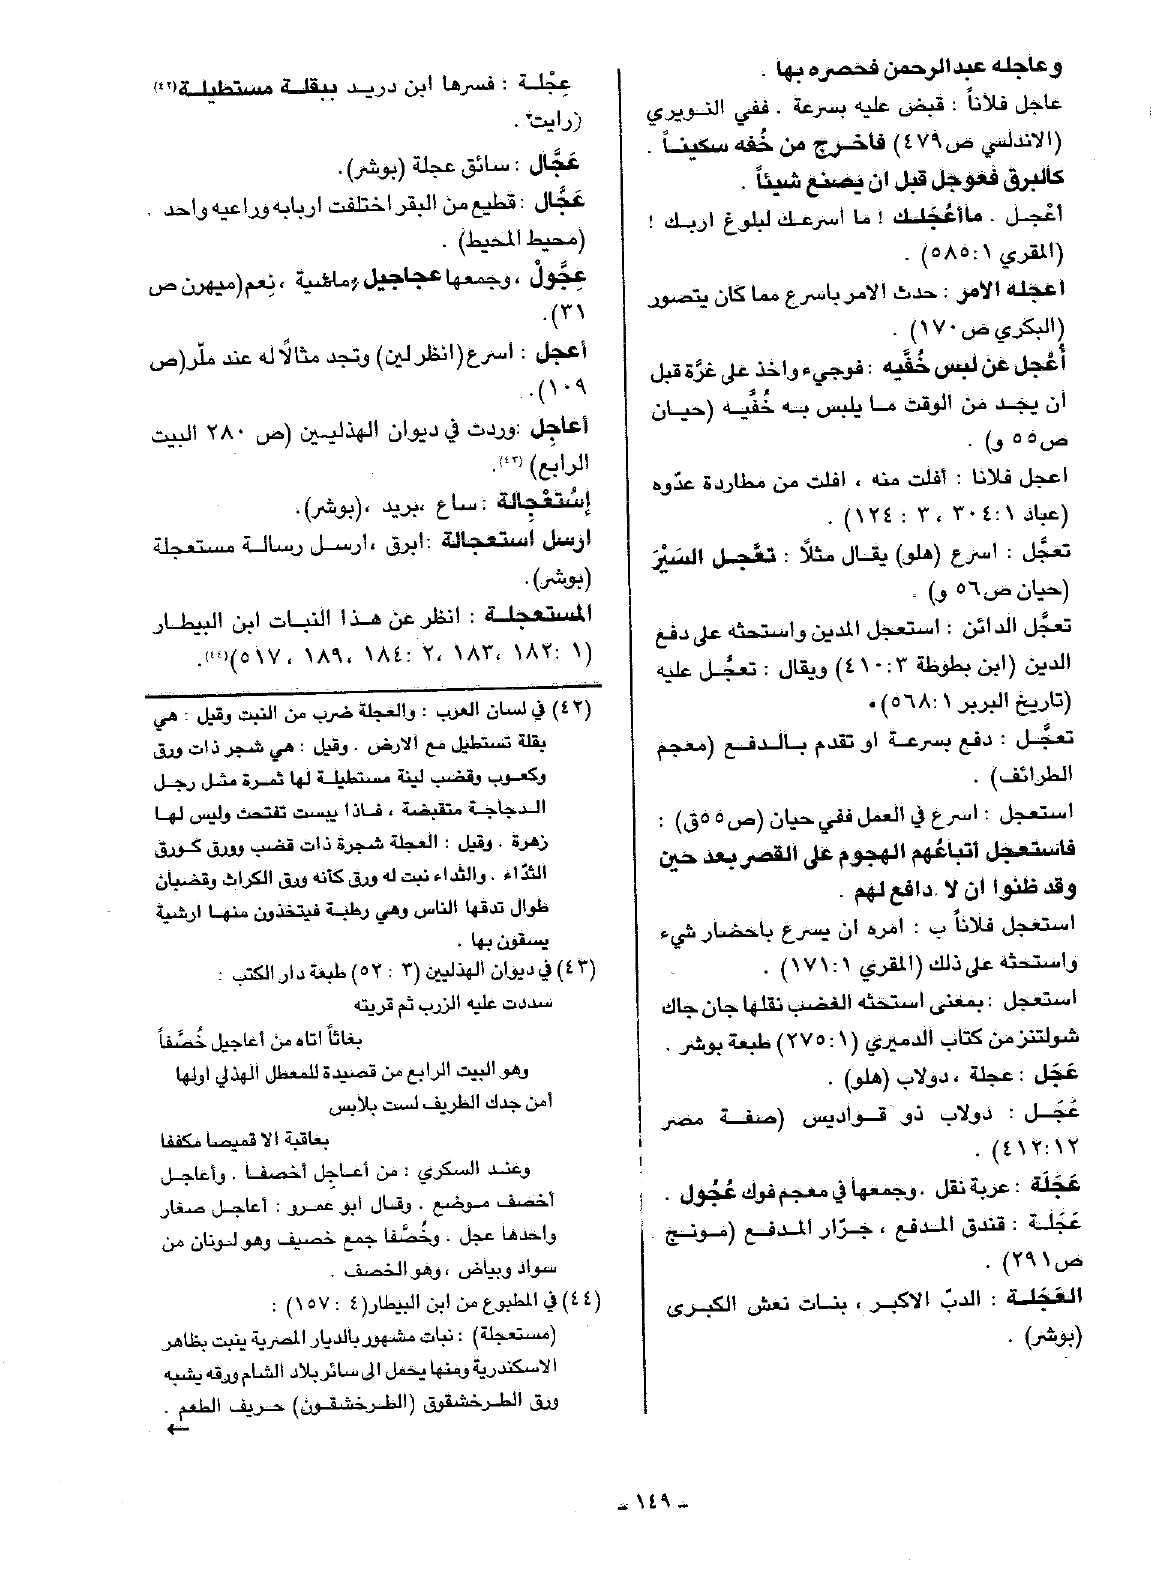 وعاجله عبدالرحمن فحصره بها .
عاجل فلاناً : قبض عليه بسرعة . ففي النويري
(الاندلسي ص٤٧٩) فاخرج من خُفه سكيناً .
كالبرق فعوجل قبل ان يصنع شيئاً .
أعْجل . ماأعْجَلك ! ما اسرعك لبلوغ اربك !
(المقري ١:٥٨٥) .
اعجله الامر : حدث الامر باسرع مما كان يتصور
(البكري ص١٧٠) .
أُعْجل عن لبس خُفَّيه : فوجيء واخذ على غرَّة قبل
أن يجد من الوقت ما يلبس به خُفَّيه (حيان
ص٥٥ و) .
اعجل فلانا : أفلت منه ، افلت من مطاردة عدّوه
(عباد ١:٣٠٤ ، ٣ : ١٢٤) .
تعجَّل : اسرع (هلو) يقال مثلاً : تعَّجل السَيْرَ
(حيان ص٥٦ و) .
تعجَّل الدائن : استعجل المدين واستحثه على دفع
الدين (ابن بطوطة ٣:٤١٠) ويقال : تعجَّل عليه
(تاريخ البربر ١:٥٦٨).
تعجَّل : دفع بسرعة او تقدم بالدفع (معجم
الطرائف) .
استعجل : اسرع في العمل ففي حيان (ص٥٥ق) :
فاستعجل أتباعُهم الهجوم على القصر بعد حين
وقد ظنوا ان لا دافع لهم .
استعجل فلاناً ب : امره ان يسرع باحضار شيء
واستحثه على ذلك (المقري ١:١٧١) .
استعجل : بمعنى استحثه الغضب نقلها جان جاك
شولتنز من كتاب الدميري (١:٢٧٥) طبعة بوشر .
عَجَل : عجلة ، دولاب (هلو) .
عُجَل : دولاب ذو قواديس (صفة مصر
١٢:٤١٢) .
عَجَلَة : عربة نقل . وجمعها في معجم فوك عُجُول .
عَجَلة : قندق المدفع ، جرّار المدفع (مونج
ص٢٩١) .
العَجَلة : الدبّ الاكبر ، بنات نعش الكبرى
(بوشر) .
عِجْلة : فسرها ابن دريد ببقلة مستطيلة(٤٢)
(رايت) .
عَجَّال : سائق عجلة (بوشر).
عَجَّال : قطيع من البقر اختلفت اربابه وراعيه واحد .
(محيط المحيط) .
عِجَّوْل ، وجمعها عجاجيل :ماشية ، نِعم(ميهرن ص
٣١).
أعجل : اسرع(انظر لين) وتجد مثالًا له عند ملّر(ص
١٠٩).
أعاجِل :وردت في ديوان الهذليين (ص ٢٨٠ البيت
الرابع) (٤٣).
إسْتعْجِالة : ساع ،بريد ،(بوشر).
ارسل استعجالة :ابرق ،ارسل رسالة مستعجلة
(بوشر).
المستعجلة : انظر عن هذا النبات ابن البيطار
(١ :١٨٢ ،١٨٣ ،٢ :١٨٤ ،١٨٩ ،٥١٧)(٤٤).
(٤٢) في لسان العرب : والعجلة ضرب من النبت وقيل : هي
بقلة تستطيل مع الارض . وقيل : هي شجر ذات ورق
وكعوب وقضب لينة مستطيلة لها ثمرة مثل رجل
الدجاجة متقبضة ، فاذا يبست تفتحت وليس لها
زهرة . وقيل : العجلة شجرة ذات قضب وورق كورق
الثدّاء . والثداء نبت له ورق كأنه ورق الكراث وقضبان
طوال تدقها الناس وهي رطبة فيتخذون منها ارشية
يسقون بها .
(٤٣) في ديوان الهذليين (٣ : ٥٢) طبعة دار الكتب :
سددت عليه الزرب ثم قريته
بغاثاً اتاه من أعاجيل خُصَّفاً
وهو البيت الرابع من قصيدة للمعطل الهذلي اولها
أمن جدك الطريف لست بلابس
بعاقبة الا قميصا مكففا
وعند السكري : من أعاجِل أخصفا . وأعاجل
أخصف موضع . وقال ابو عمرو : أعاجل صغار
واحدها عجل . وخُصَّفا جمع خصيف وهو لونان من
سواد وبياض ، وهو الخصف .
(٤٤) في المطبوع من ابن البيطار(٤ : ١٥٧) :
(مستعجلة) : نبات مشهور بالديار المصرية ينبت بظاهر
الاسكندرية ومنها يحمل الى سائر بلاد الشام ورقه يشبه
ورق الطرخشقوق (الطرخشقون) حريف الطعم .
←
ـ ١٤٩ ـ